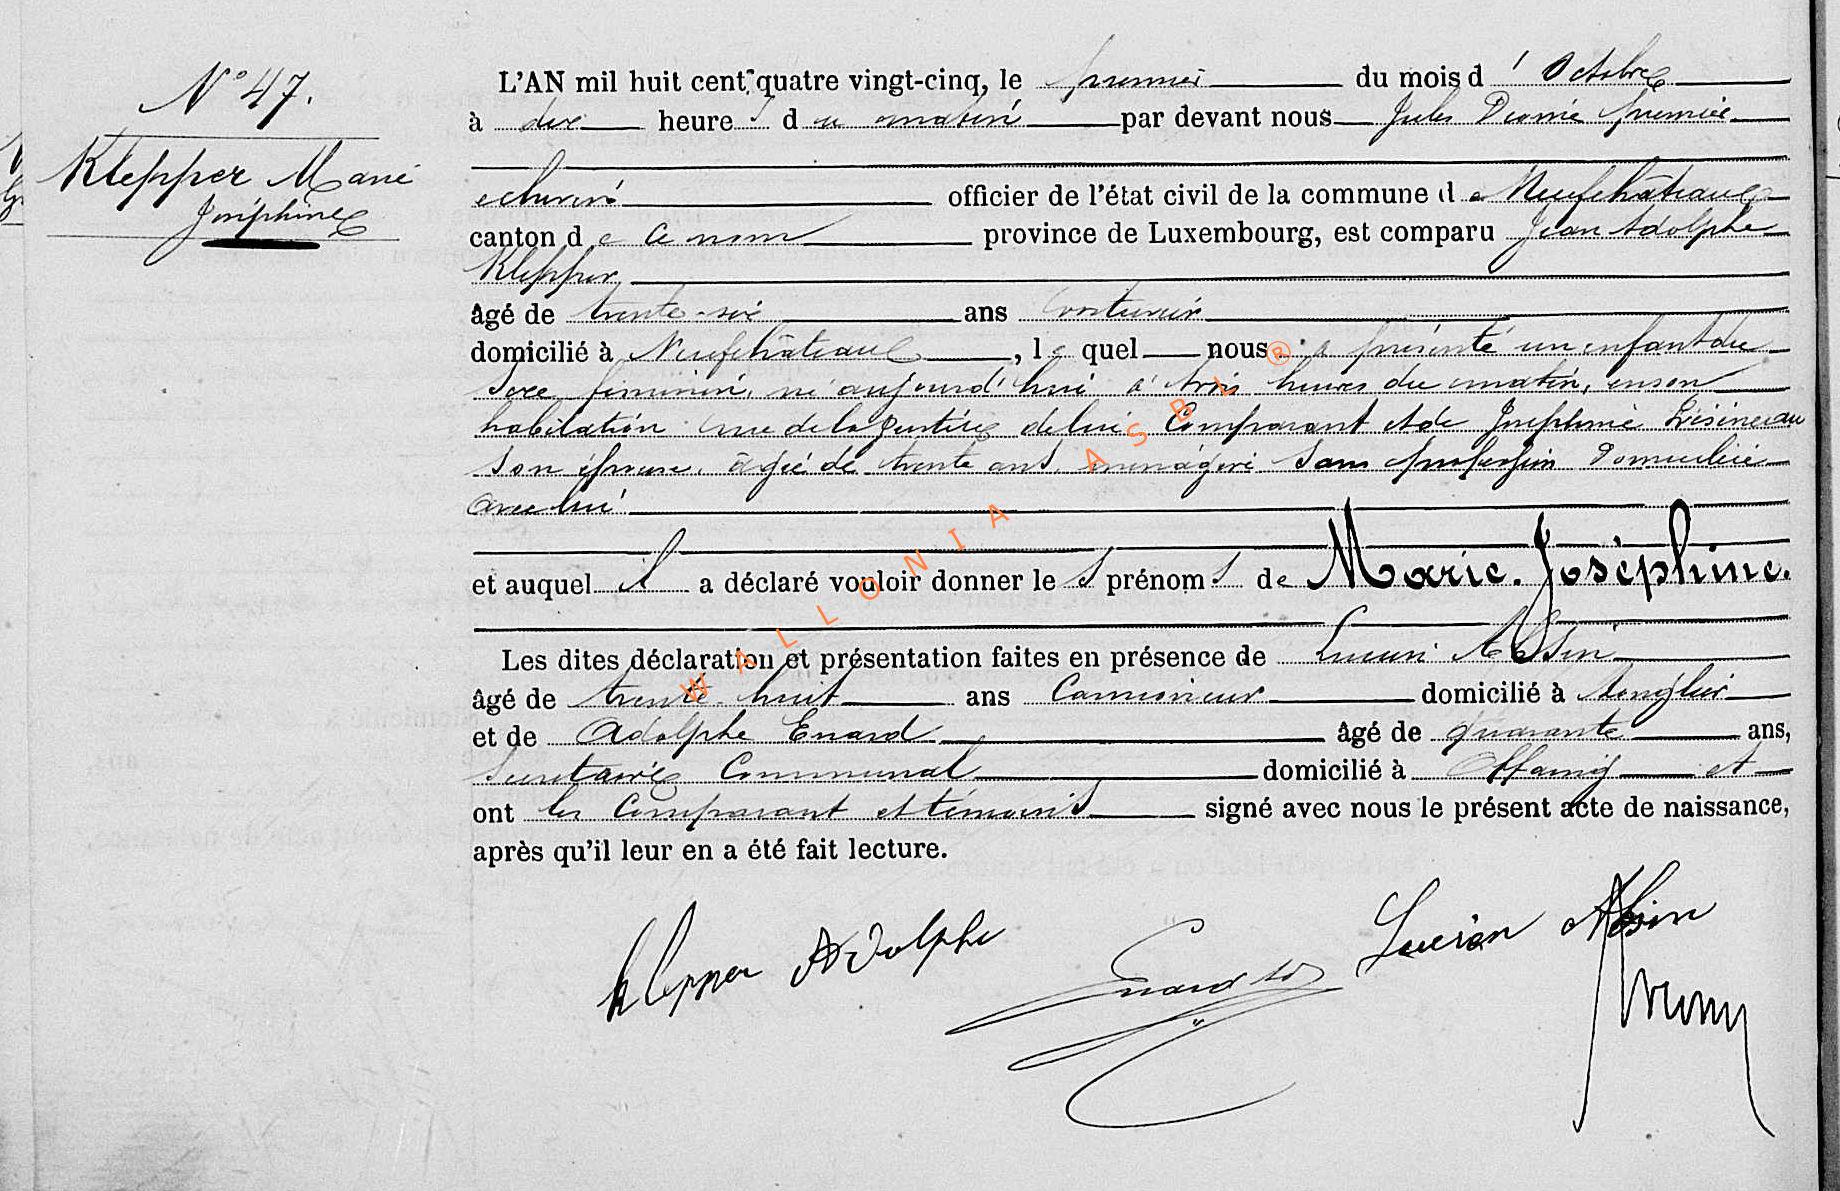 N° 47.
Klepper Marie
Joséphine
L'AN mil huit cent quatre vingt-cinq, le premier du mois d'Octobre
à dix heures du matin par devant nous Jules premier
échevin officier de l'état civil de la commune de Neufchâteau
canton de ce nom province de Luxembourg, est comparu Jean Adolphe
Klepper
âgé de trente-six ans voiturier
domicilié à Neufchâteau, lequel nous a présenté un enfant du
sexe féminin, né aujourd'hui à trois heures du matin, en son
habitation rue de la de lui Comparant et de Joséphine
son épouse, âgée de trente ans ménagère sans profession Domiciliée
avec lui
et auquel il a déclaré vouloir donner les prénoms de Marie-Joséphine.
Les dites déclaration et présentation faites en présence de Lucien Alsin
âgé de trente-huit ans Camionneur domicilié à Longlier
et de Adolphe Enard âgé de quarante ans,
Secrétaire Communal domicilié à Offaing et
ont les Comparant et témoins signé avec nous le présent acte de naissance,
après qu'il leur en a été fait lecture.
Klepper Adolphe
Enard
Lucien Alsin
WALLONIA ASBL ®